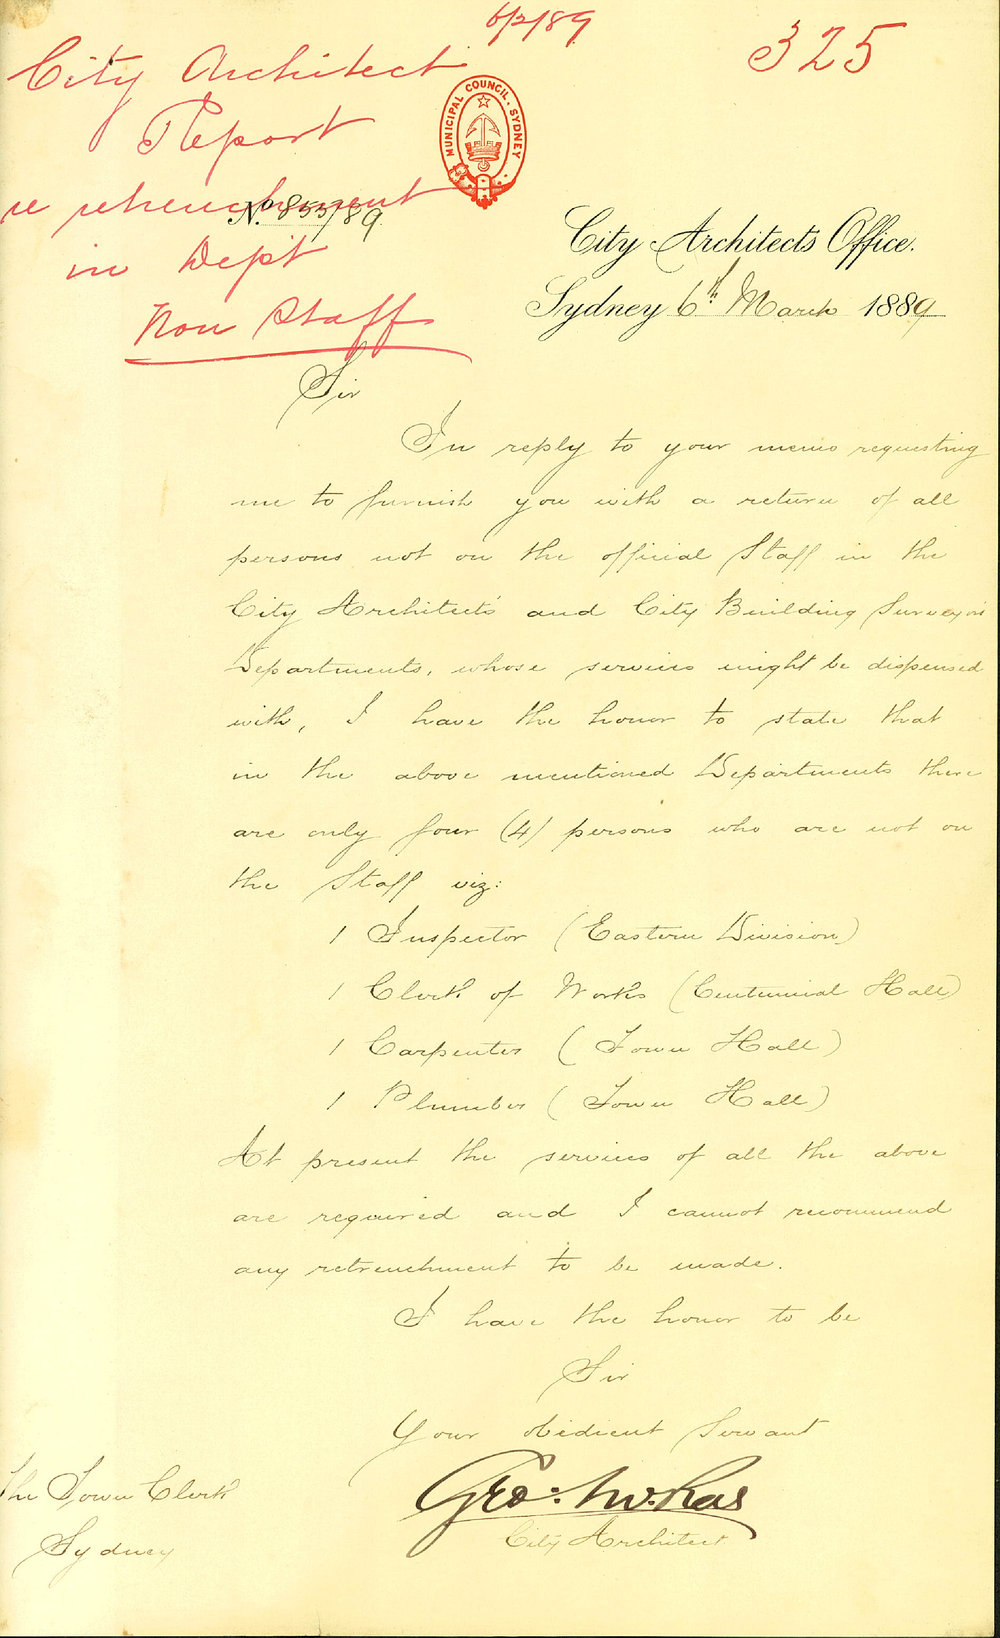 6/2/89
325
City Architect
Report
re retrenchment
in Dept
Non Staff
MUNICIPAL COUNCIL. SYDNEY
No. 855/89
City Architects Office.
Sydney 6th March 1889
Sir
In reply to your memo requesting
me to furnish you with a return of all
persons not on the official Staff in the
City Architect's and City Building Surveyor's
Departments, whose services might be dispensed
with, I have the honor to state that
in the above mentioned Departments there
are only four (4) persons who are not on
the Staff viz:
1 Inspector (Eastern Division)
1 Clerk of Works (Centennial Hall)
1 Carpenter (Town Hall)
1 Plumber (Town Hall)
At present the services of all the above
are required and I cannot recommend
any retrenchment to be made.
I have the honor to be
Sir
Your obedient Servant
Geo:
City Architect
The Town Clerk
Sydney